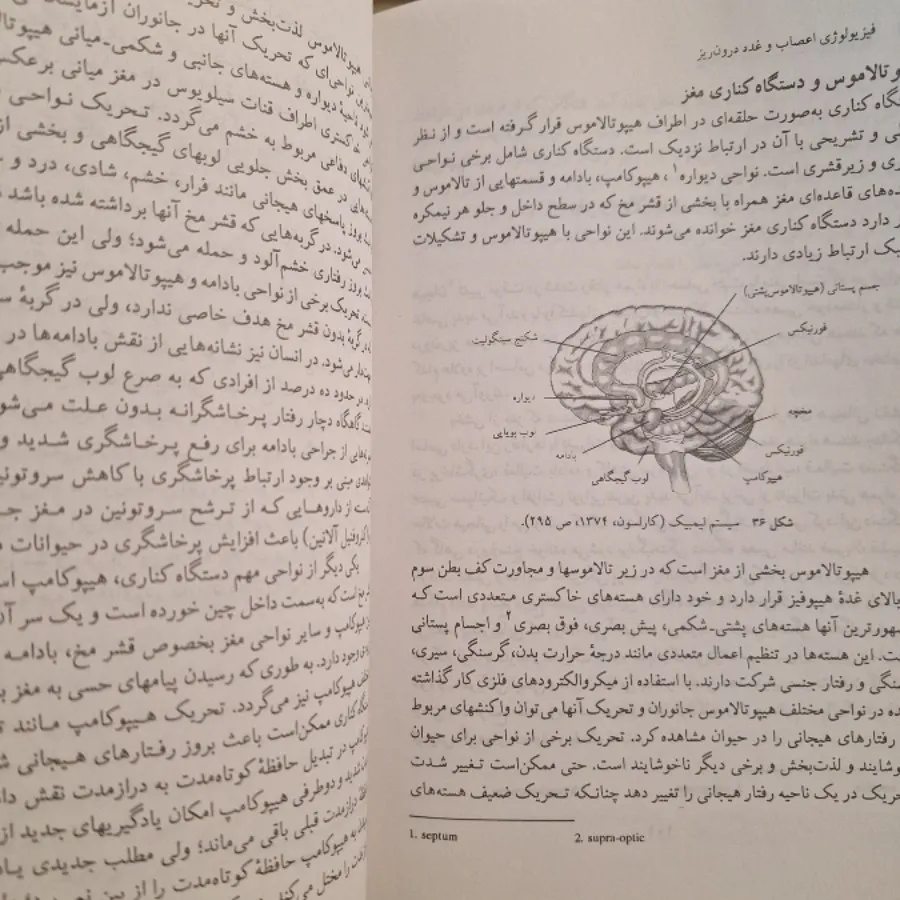 فیزیولوژی اعصاب و غدد درون‌ریز
وتالاموس و دستگاه کناری مغز
گاه کناری به‌صورت حلقه‌ای در اطراف هیپوتالاموس قرار گرفته است و از نظر
و تشریحی با آن در ارتباط نزدیک است. دستگاه کناری شامل برخی نواحی
ری و زیرقشری است. نواحی دیواره۱، هیپوکامپ، بادامه و قسمتهایی از تالاموس و
ده‌های قاعده‌ای مغز همراه با بخشی از قشر مخ که در سطح داخل و جلو هر نیمکره
دارد دستگاه کناری مغز خوانده می‌شوند. این نواحی با هیپوتالاموس و تشکیلات
یک ارتباط زیادی دارند.
جسم پستانی (هیپوتالاموس‌پشتی)
فورنیکس
شکنج سینگولیت
دیواره
مخچه
لوب بویایی
فورنیکس
بادامه
هیپوکامپ
لوب گیجگاهی
شکل ۳۶ سیستم لیمبیک (کارلسون، ۱۳۷۴، ص ۲۹۵).
هیپوتالاموس بخشی از مغز است که در زیر تالاموسها و مجاورت کف بطن سوم
بالای غدهٔ هیپوفیز قرار دارد و خود دارای هسته‌های خاکستری متعددی است که
هورترین آنها هسته‌های پشتی‌ـ‌شکمی، پیش بصری، فوق بصری۲ و اجسام پستانی
ت. این هسته‌ها در تنظیم اعمال متعددی مانند درجهٔ حرارت بدن، گرسنگی، سیری،
نگی و رفتار جنسی شرکت دارند. با استفاده از میکروالکترودهای فلزی کار گذاشته
ده در نواحی مختلف هیپوتالاموس جانوران و تحریک آنها می‌توان واکنشهای مربوط
رفتارهای هیجانی را در حیوان مشاهده کرد. تحریک برخی از نواحی برای حیوان
وشایند و لذت‌بخش و برخی دیگر ناخوشایند است. حتی ممکن‌است تغییر شدت
حریک در یک ناحیه رفتار هیجانی را تغییر دهد چنانکه تحریک ضعیف هسته‌های
1. septum 2. supra-optic
هیپوتالاموس لذت‌بخش و
نواحی‌ای که تحریک آنها در جانوران
ناحیهٔ دیواره و هسته‌های جانبی و شکمی‌ـ‌میانی
خاکستری اطراف قنات سیلویوس در مغز میانی برعکس
دفاعی مربوط به خشم می‌گردد. تحریک نواحی
در عمق بخش جلویی لوبهای گیجگاهی و بخشی از
بروز پاسخهای هیجانی مانند فرار، خشم، شادی، درد و
می‌شود. در گربه‌هایی که قشر مخ آنها برداشته شده باشد
بروز رفتاری خشم‌آلود و حمله می‌شود؛ ولی این حمله
تحریک برخی از نواحی بادامه و هیپوتالاموس نیز موجب
گربهٔ بدون قشر مخ هدف خاصی ندارد، ولی در گربهٔ
می‌شود. در انسان نیز نشانه‌هایی از نقش بادامه‌ها در
در حدود ده درصد از افرادی که به صرع لوب گیجگاهی
گاهگاه دچار رفتار پرخاشگرانه بدون علت می‌شو
از جراحی بادامه برای رفع پرخاشگری شدید و
مبنی بر وجود ارتباط پرخاشگری با کاهش سروتونین
از داروهایی که از ترشح سروتونین در مغز
(کلروفنیل آلانین) باعث افزایش پرخاشگری در حیوانات
یکی دیگر از نواحی مهم دستگاه کناری، هیپوکامپ
است که به‌سمت داخل چین خورده است و یک سر آن
هیپوکامپ و سایر نواحی مغز بخصوص قشر مخ، بادامه
وجود دارد. به طوری که رسیدن پیامهای حسی به مغز
هیپوکامپ نیز می‌گردد. تحریک هیپوکامپ مانند
کناری ممکن‌است باعث بروز رفتارهای هیجانی
در تبدیل حافظهٔ کوتاه‌مدت به درازمدت نقش
شدید و دوطرفی هیپوکامپ امکان یادگیریهای جدید از
درازمدت قبلی باقی می‌ماند؛ ولی مطلب جدیدی
به هیپوکامپ حافظهٔ کوتاه‌مدت را از بین
را مختل می‌کند